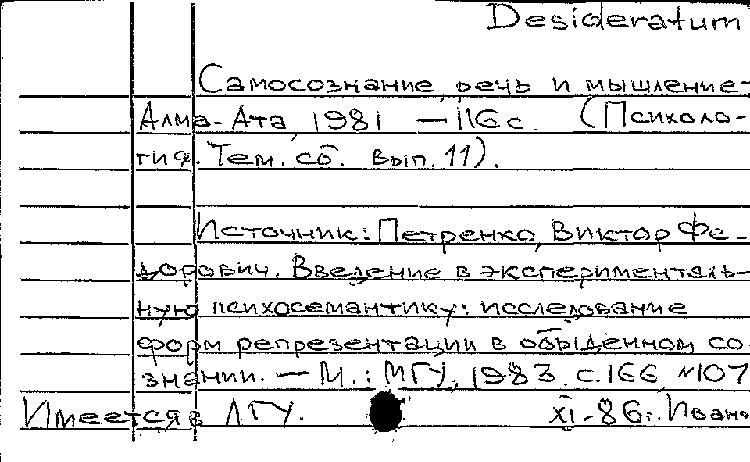 Desideratum
Самосознание, речь и мышление-
Алма-Ата, 1981 — 116 с. (Психоло-
гия. Тем. сб. Вып. 11).
Источник: Петренко, Виктор Фе-
дорович. Введение в эксперименталь-
ную психосемантику: исследование
форм репрезентации в обыденном со
знании. — М.: МГУ, 1983. с.166, №107
Имеется в ЛГУ. XI-86г. Ивано